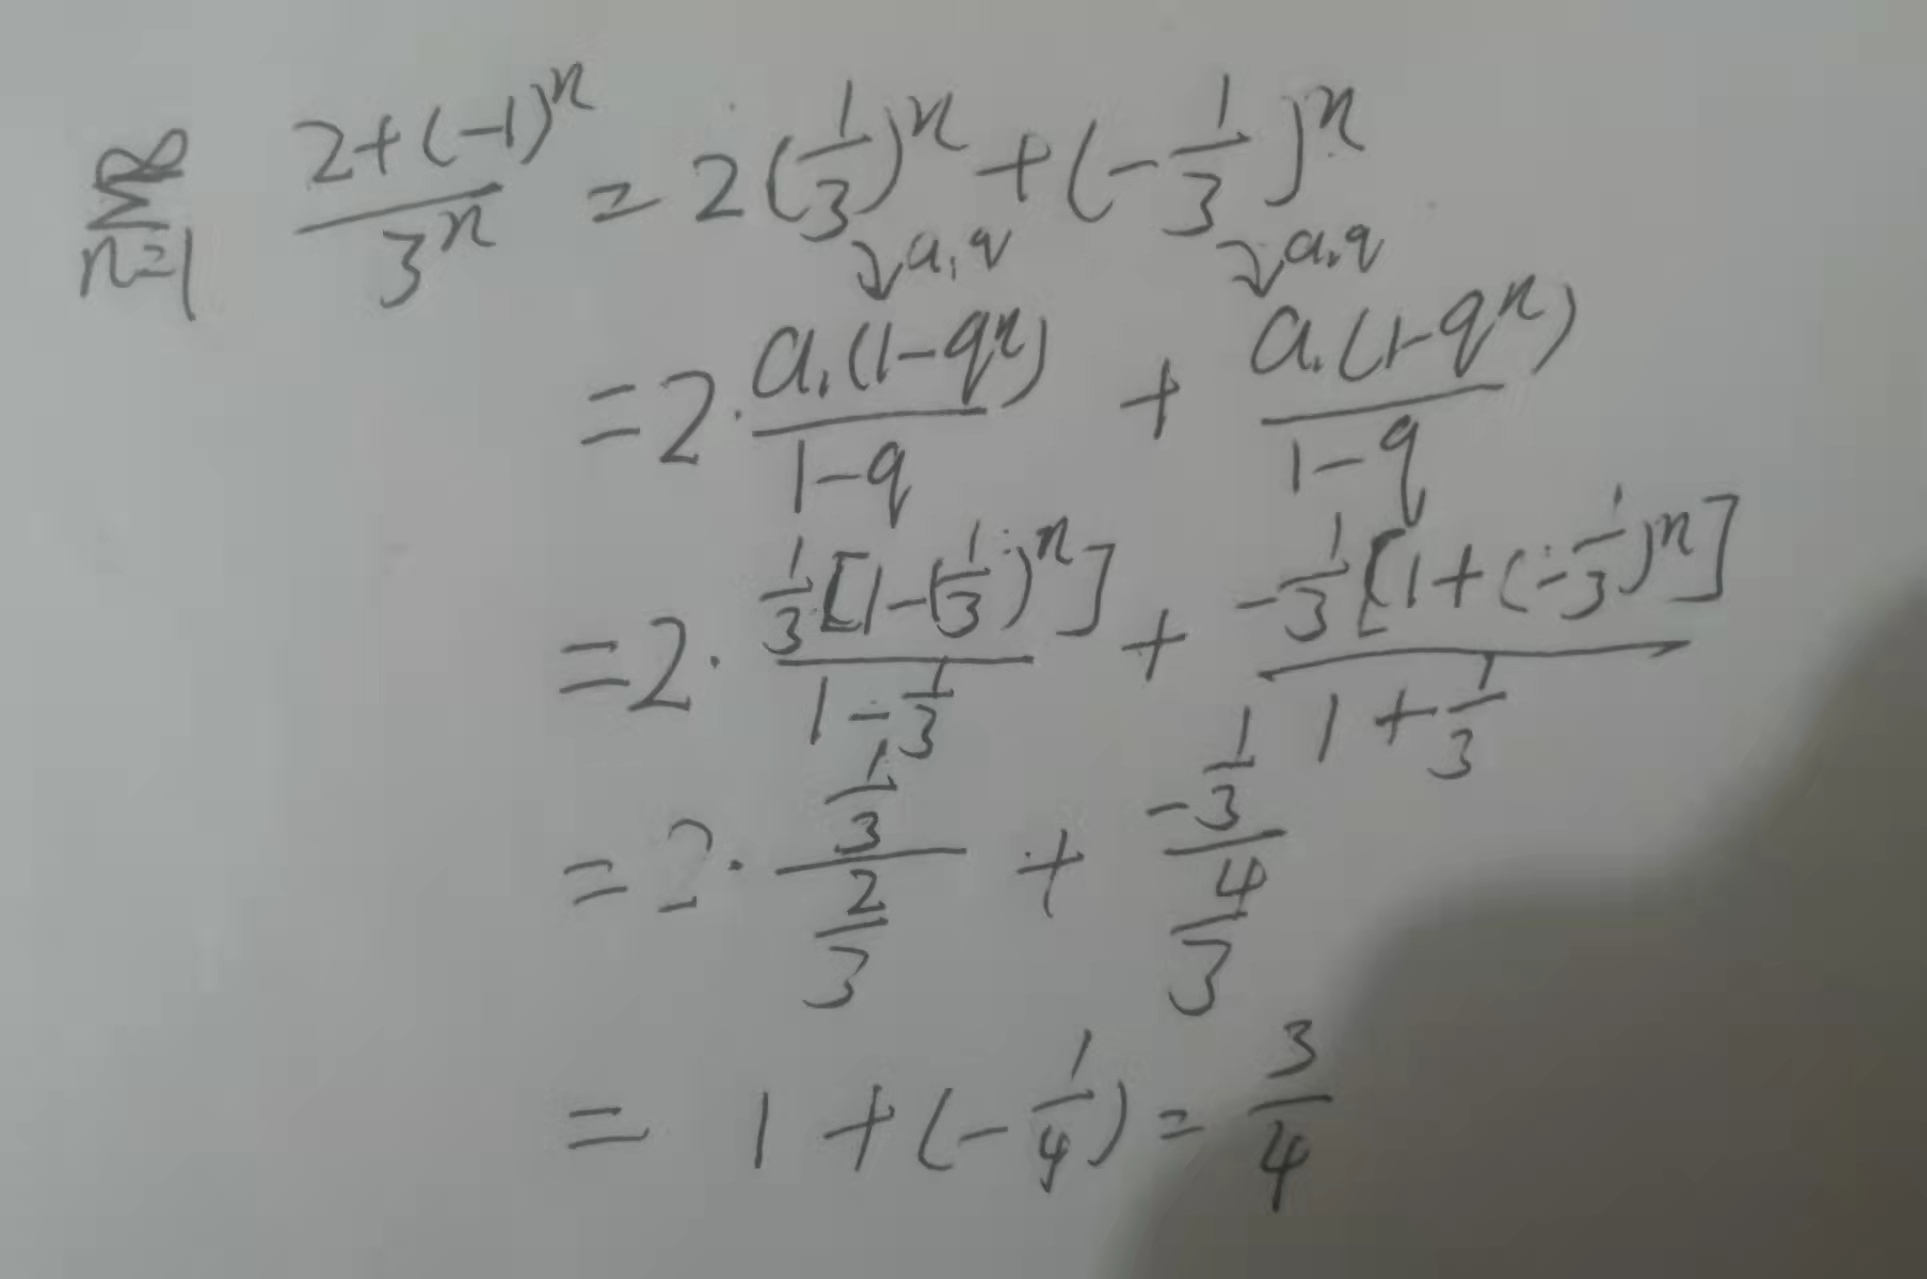 ∞
∑
n=1
(2+(-1)^n)/(3^n) = 2(1/3)^n + (-1/3)^n
↓a₁q ↓a₁q
=2·(a₁(1-q^n))/(1-q) + (a₁(1-q^n))/(1-q)
=2·(1/3[1-(1/3)^n])/(1-1/3) + (-1/3[1+(-1/3)^n])/(1+1/3)
=2·(1/3)/(2/3) + (-1/3)/(4/3)
= 1+(-1/4)=3/4